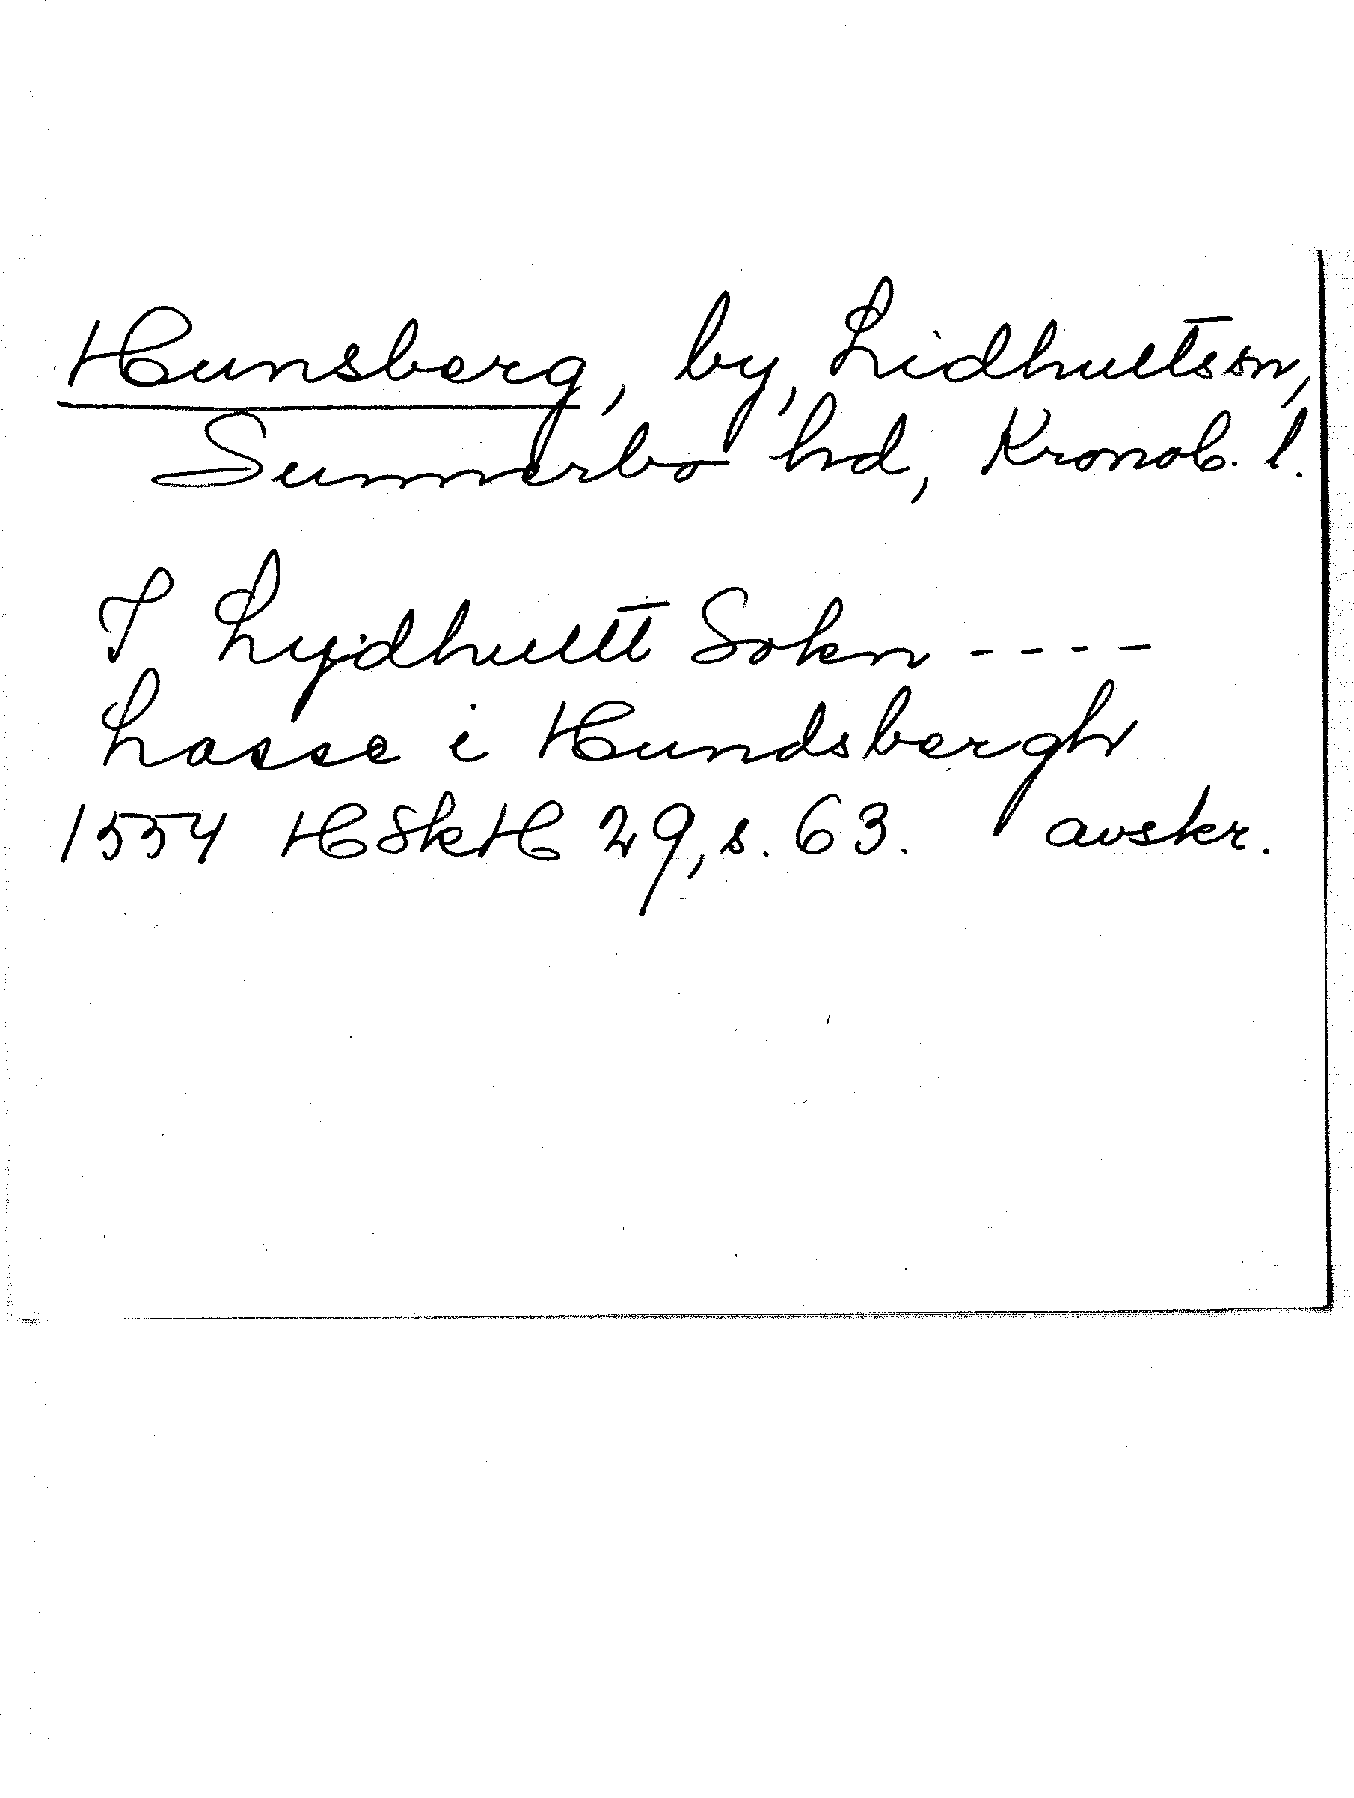 Hunsberg, by, Lidhults sn,
Sunnerbo hd, Kronob. l.
I Lydhultt Sokn ----
Lasse i Hundsbergh
1554 HSkH 29, s. 63. avskr.